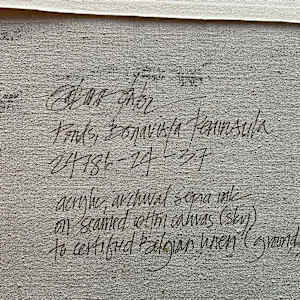 Ponds, Bonavista Peninsula
24786-24-37
acrylic, archival sepia ink
on seamed cotton canvas (sky)
to certified Belgian linen (ground